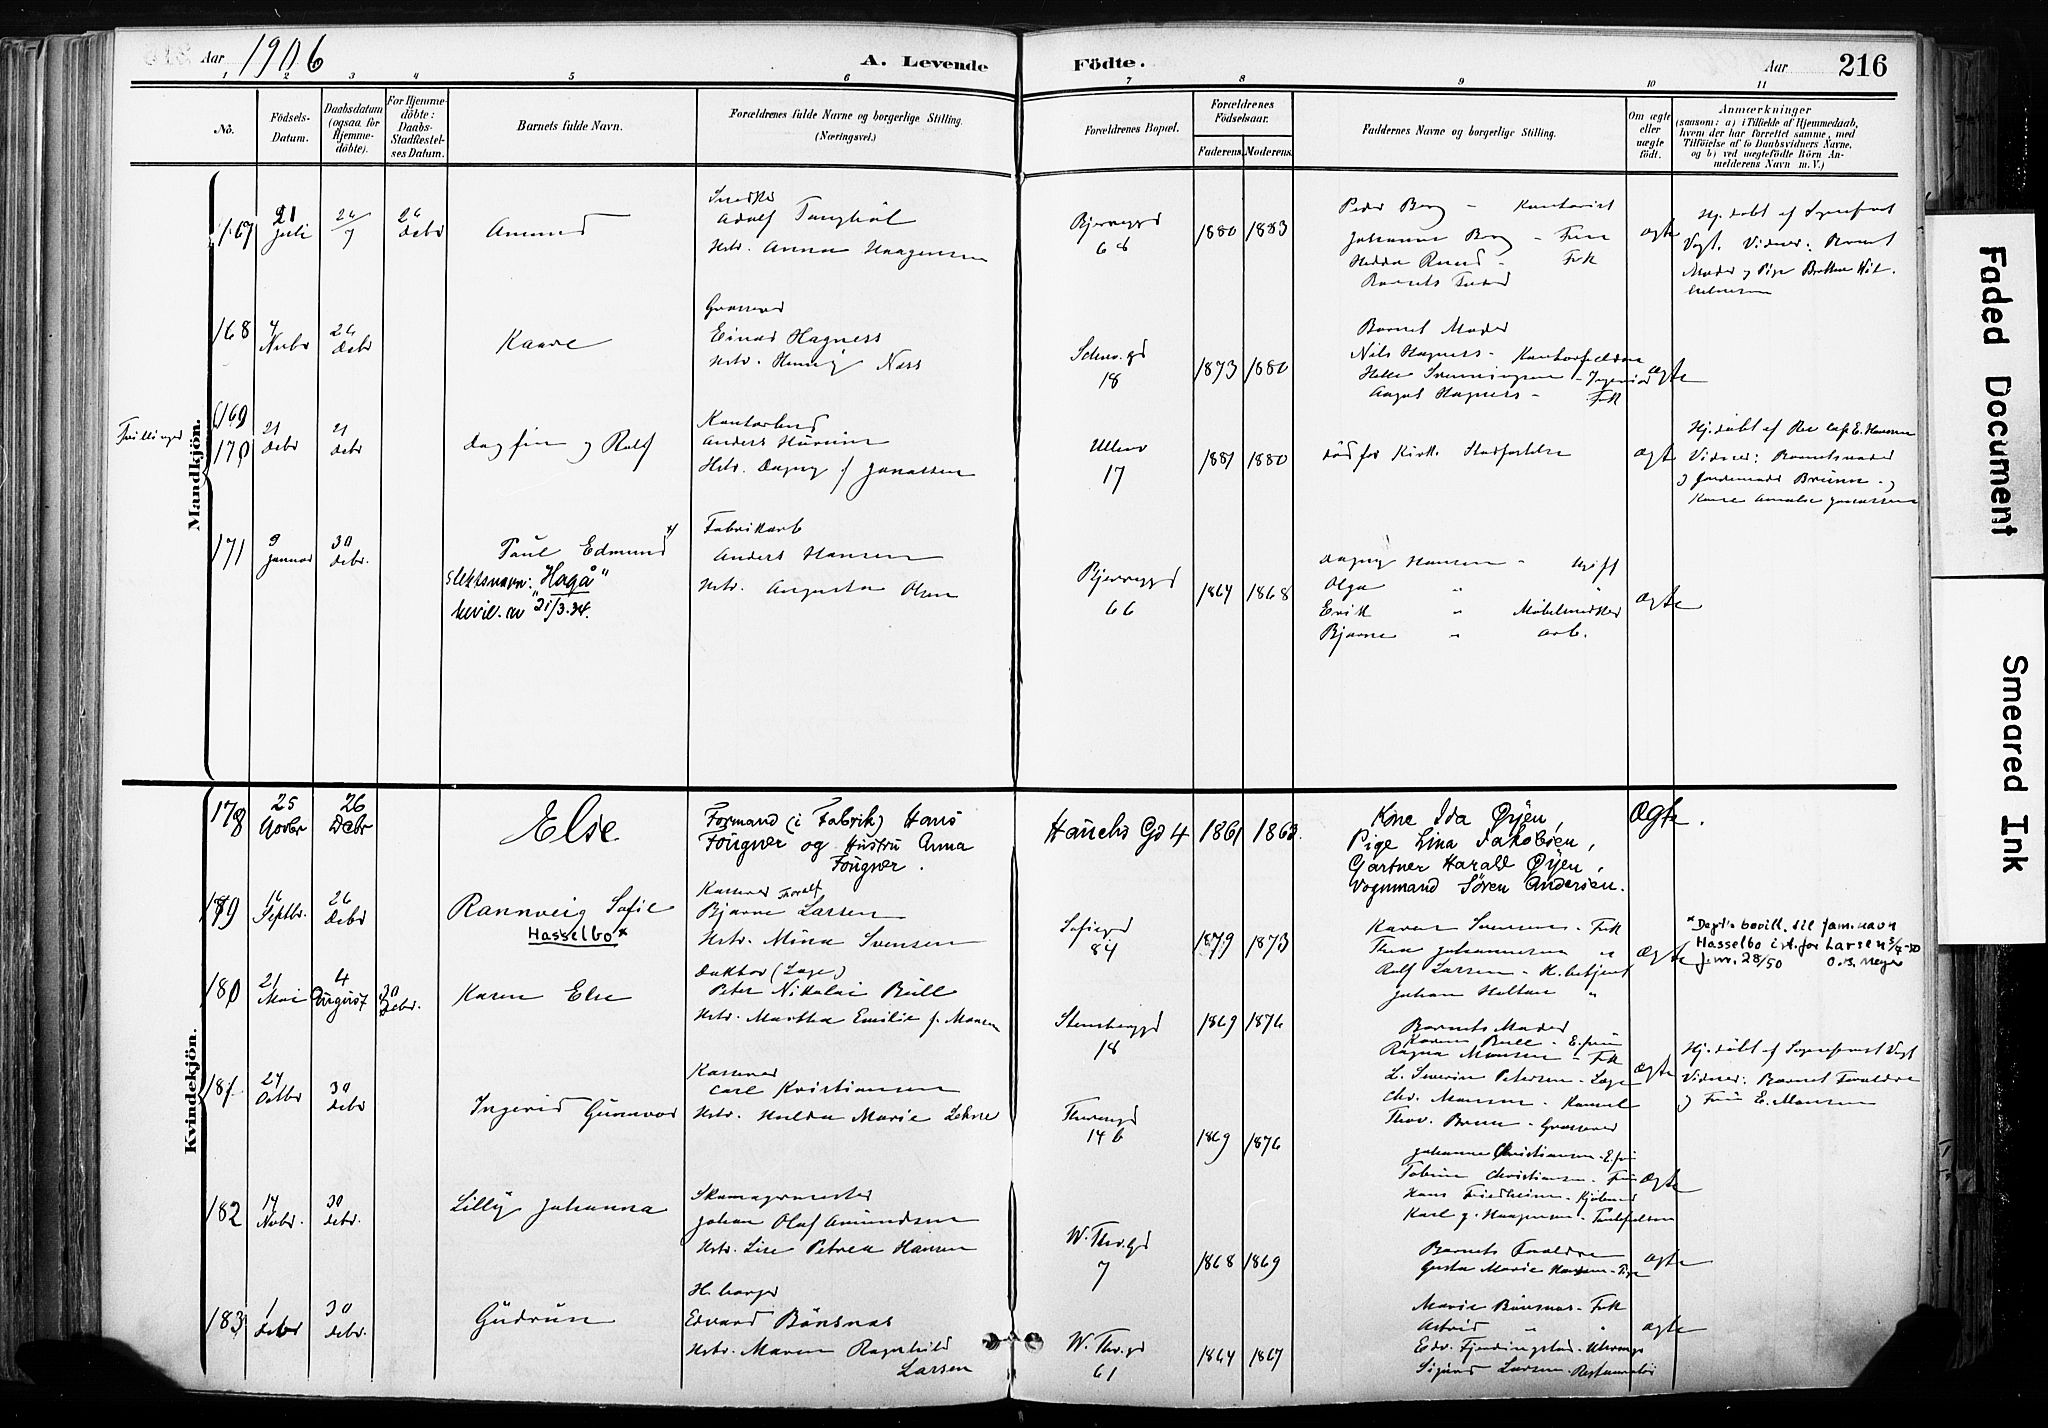 Aar 1906
A. Levende Födte.
Aar 216
1 2 3 4 5 6 7 8 9 10 11
No.
Födsels-Datum.
Daabsdatum (ogsaa for Hjemme-döbte).
For Hjemme-döbte: Daabs-Stadfæstel-ses Datum.
Barnets fulde Navn.
Forældrenes fulde Navne og borgerlige Stilling. (Næringsvei.)
Forældrenes Bopæl.
Forældrenes Födselsaar.
Faderens. Moderens.
Faddernes Navne og borgerlige Stilling.
Om ægte eller uægte födt.
Anmærkninger
(saasom: a) i Tilfælde af Hjemmedaab,
hvem der har forrettet samme, med
Tilföielse af to Daabsvidners Navne,
og b) ved uægtefödte Börn An-
melderens Navn m. V.)
Mandkjön.
167
21 Juli
26/7
26 Debr
Amund
Snedker
Adolf
Hstr. Anna Haagensen
Bjerregd 68
1880 1883
Peder Berg - Kontorist
Johanne Berg - Frue
Hedda - Frk
Barnets Fader
ægte
Hj. döbt af Sognepræst
Vogt. Vidner: Barnets
Moder og Pige
168
4 Novbr
26 Debr
Kaare
Grosserer
Einar Hagness
Hstr. Henny Næss
Schw.gd 18
1873 1880
Barnets Moder
Nils Hagness -
- Ingeniør
Aagot Hagness - Frk
ægte
Tvillinger
169
170
21 Debr
21 Debr
Dagfin og Rolf
Anders
Hstr. Dagny f Jonassen
Ullev 17
1881 1880
Död før Kirk. Stadfæstelse
ægte
Hj. döbt af Res Cap. E. Hansen
Vidner: Barnets moder
og Jordemoder Bruun og
171
9 Januar
30 Debr.
Paul Edmund x/
slektsnavn: "Hagå"
bevil. av 21/3.34.
Fabrikarb
Anders Hansen
Hstr. Augusta Olsen
Bjerregd 66
1864 1868
Dagny Hansen - Ugift
Olga " "
Erik " Møbelsnedker
Bjarne " Arb.
ægte
Kvindekjön.
178
25 Novbr
26 Debr
Else
Formand (i Fabrik) Hans
Fougner og Hustru Anna
Fougner.
Hauchs Gd 4
1861 1863.
Kone Ida Øyen,
Pige Lina Jakobsen,
Gartner Harald Øyen,
Vognmand Sören Andersen.
Ægte.
179
16 Septbr.
26 Debr
Rannveig Sofie
Hasselbo x
Kasserer
Bjarne Larsen
Hstr. Mina Svensen
Sofiegd 84
1879 1873
Karen Svensen - Frk
Thea Johannesen "
Rolf Larsen - H. betjent
Johan Holtan "
ægte
x Dept's bevill. til fam.navn
Hasselbo ist. for Larsen 3/7-50
J.nr. 28/50 O.B. Meyer
180
21 Mai
4 August
30 Debr.
Karen Else
Doktor (Læge)
Peter Nikolai Bull
Hstr. Martha Emilie f. Monsen
Stensberggd 18
1869 1876
Barnets Moder
Karen Bull - E.frue
Ragna Monsen - Frk
L. Severin Petersen - Læge
Chr. Monsen - Konsul
ægte
Hj. döbt af Sognepræst Vogt
Vidner: Barnets Forældre
og Frue E. Monsen
181
24 Octbr
30 Debr
Ingerid Gunvor
Kasserer
Carl Kristiansen
Hstr. Hulda Marie
Theresgd 14 b
1869 1876
Thorv. Bruun - Grosserer
Johanne Christiansen - E.frue
Christiansen - Frue
Hans Friedheim - Kjøbmd
Karl J. Haagensen
ægte
182
14 Novbr.
30 Debr.
Lilly Johanna
Skomagermester
Johan Olaf Amundsen
Hstr. Lise Petrea Hansen
W. Thr.gd 7
1868 1869
Barnets Forældre
Gusta Marie Hansen - Pige
ægte
183
1 Debr
30 Debr.
Gudrun
Edvard Bönsnæs
Hstr. Maren Ragnhild
Larsen
W. Thr.gd 61
1864 1867
Marie Bönsnæs - Frk
Astrid " "
Edv. Fjerdingstad -
Sigurd Larsen - Restauratør
ægte
Faded Document
Smeared Ink